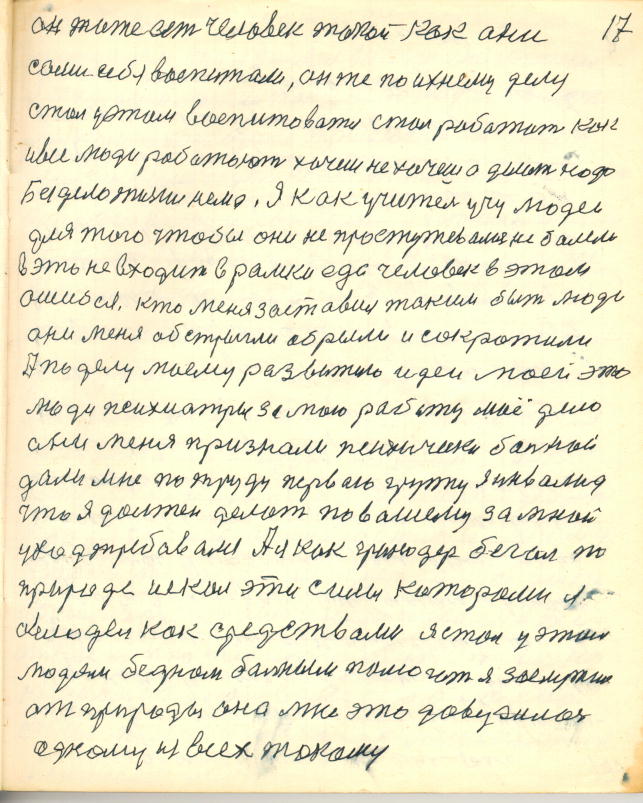 он тоже ест человек такой как ани 17
сами себя воспитали, он же по ихнему делу
стал у этом воспитовати стал работат как
и все люди работают хочеш не хочеш а делат надо
Без дела жизни нема. Я как учител учу людеи
для того чтобы они не простужевалис не балели
в это не входит в рамки еда человек в этом
ошибся. кто меня заставил таким быт люди
они меня обстригли обрыли и сократили
А по делу моему развитию идеи моей это
люди психиатры за мою работу моё дело
они меня признали психически болной
дали мне по труду первого группу я инвалид
что я должен делат по вашему за мной
уход требавался А я как бегал по
природе искал эти силы каторами
людеи как средствами я стал у этом
людям бедном балным помогат я
от природы она мне это довирилас
одному из всех такому